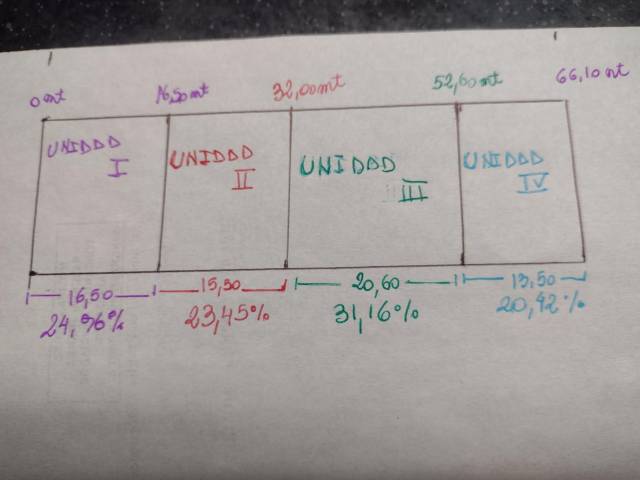 0 mt 16,50 mt 32,00 mt 52,60 mt 66,10 mt
UNIDAD I
UNIDAD II
UNIDAD III
UNIDAD IV
16,50 15,50 20,60 13.50
24,96% 23,45% 31,16% 20,42%